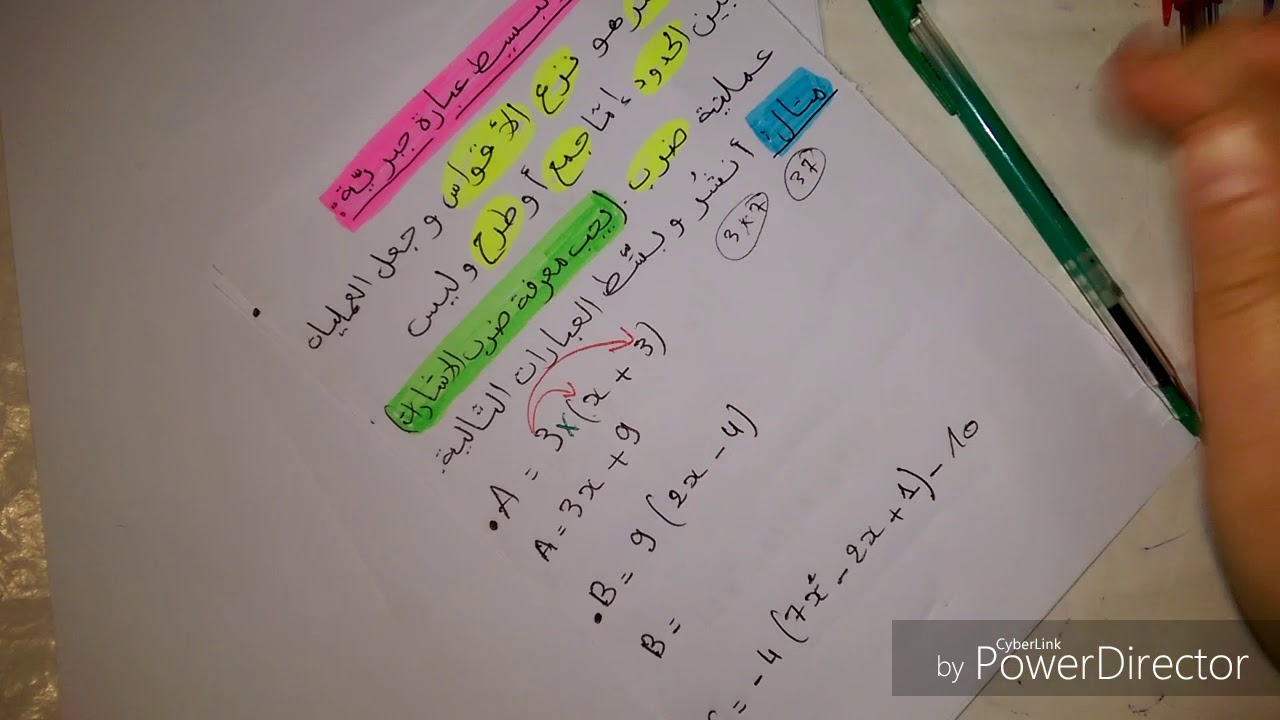 تبسيط عبارة جبريّة:
هو نزع الأقواس وجعل العمليات
بين الحدود إمّا جمع أو طرح وليس
عملية ضرب. (يجب معرفة ضرب الاشارات)
مثال: أنشُر وبسّط العبارات التالية:
37
3x7
• A = 3x(x + 3)
A = 3x + 9
• B = 9 (2x - 4)
B =
= -4 (7x² - 2x + 1) - 10
CyberLink
by PowerDirector